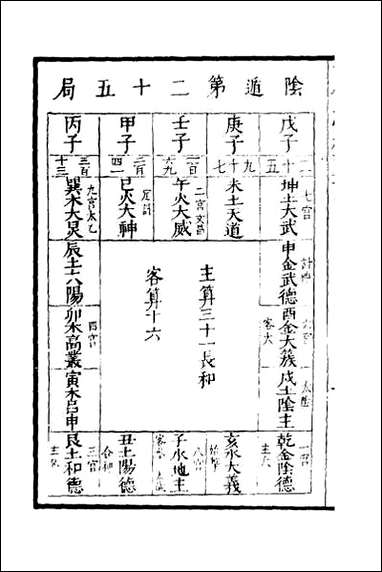 陰遁第二十五局
戊子
二十五
庚子
九十七
壬子
一百
六九
甲子
二百
四一
丙子
三百
十三
七宮
坤土大武
未土天道
二宮文昌
午火大威
巳火大神
九宮太乙
巽木大炅
計神
申金武德
酉金大簇
客大
太陰
戌土陰主
一宮
乾金陰德
主大
主算三十一長和
客算十六
辰土太陽
四宮
卯木高叢
寅木呂申
亥水大義
始擊
八宮
子水地主
丑土陽德
合神
三宮
艮土和德